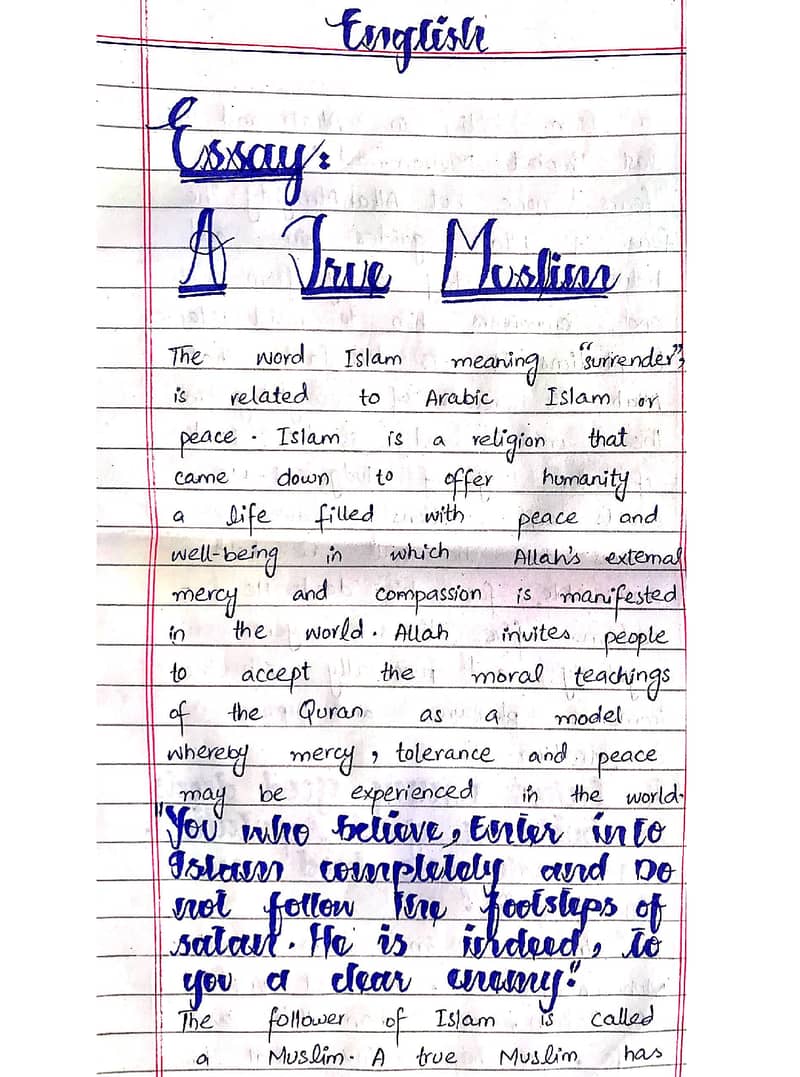 English
Essay:
A True Muslim
The word Islam meaning "surrender",
is related to Arabic Islam or
peace. Islam is a religion that
came down to offer humanity
a life filled with peace and
well-being in which Allah's external
mercy and compassion is manifested
in the world. Allah invites people
to accept the moral teachings
of the Quran as a model
whereby mercy, tolerance and peace
may be experienced in the world.
"You who believe, Enter into
Islam completely and Do
not follow the footsteps of
satan. He is indeed, to
you a clear enemy."
The follower of Islam is called
a Muslim. A true Muslim has